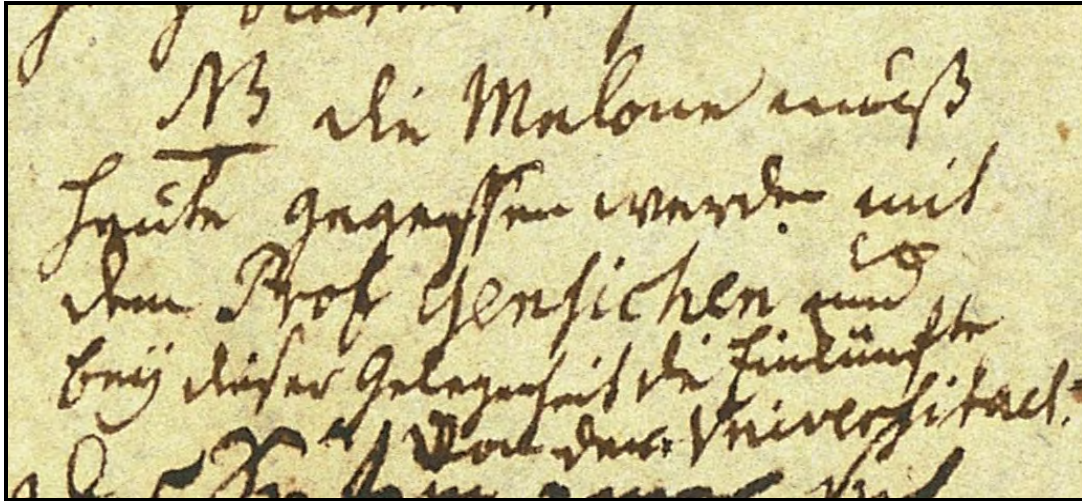 NB die Melone muß
heute gegessen werden mit
dem Prof Gensichen und
bey dieser Gelegenheit die Einkünfte
von der Universitaet.